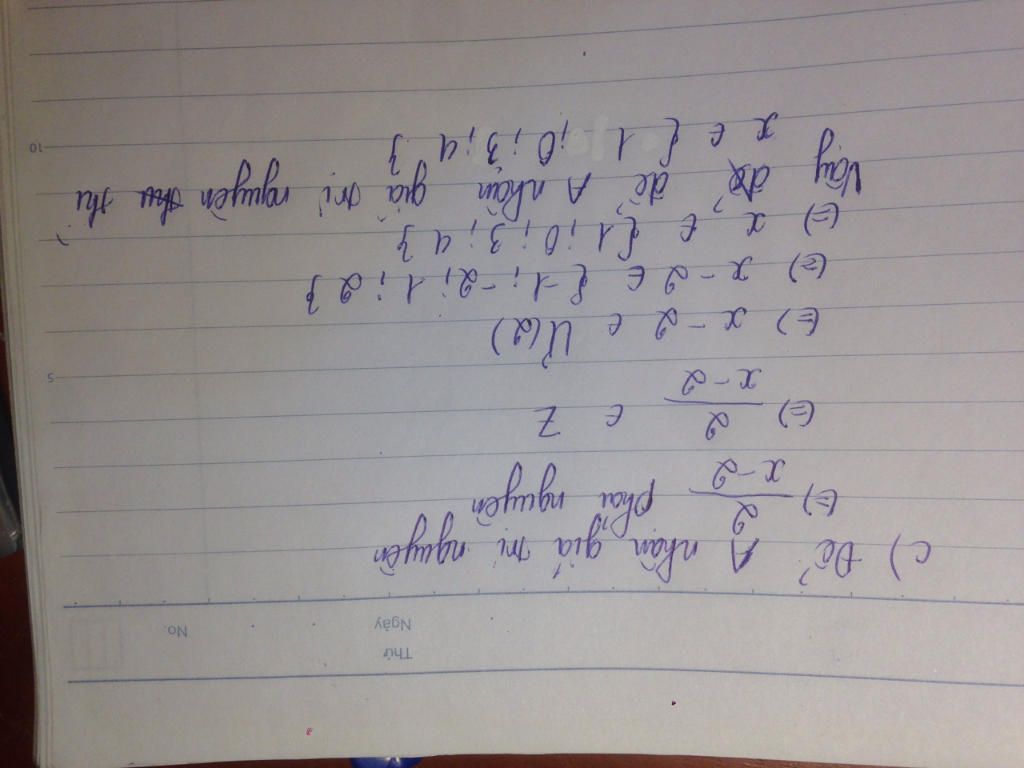 Thứ
Ngày
No.
c) Để A nhận giá trị nguyên
(=) 2/(x-2) phải nguyên
(=) 2/(x-2) ∈ Z
5
(=) x-2 ∈ Ư(2)
(=) x-2 ∈ {-1; -2; 1; 2}
(=) x ∈ {1; 0; 3; 4}
Vậy để A nhận giá trị nguyên thì
10
x ∈ {1; 0; 3; 4}